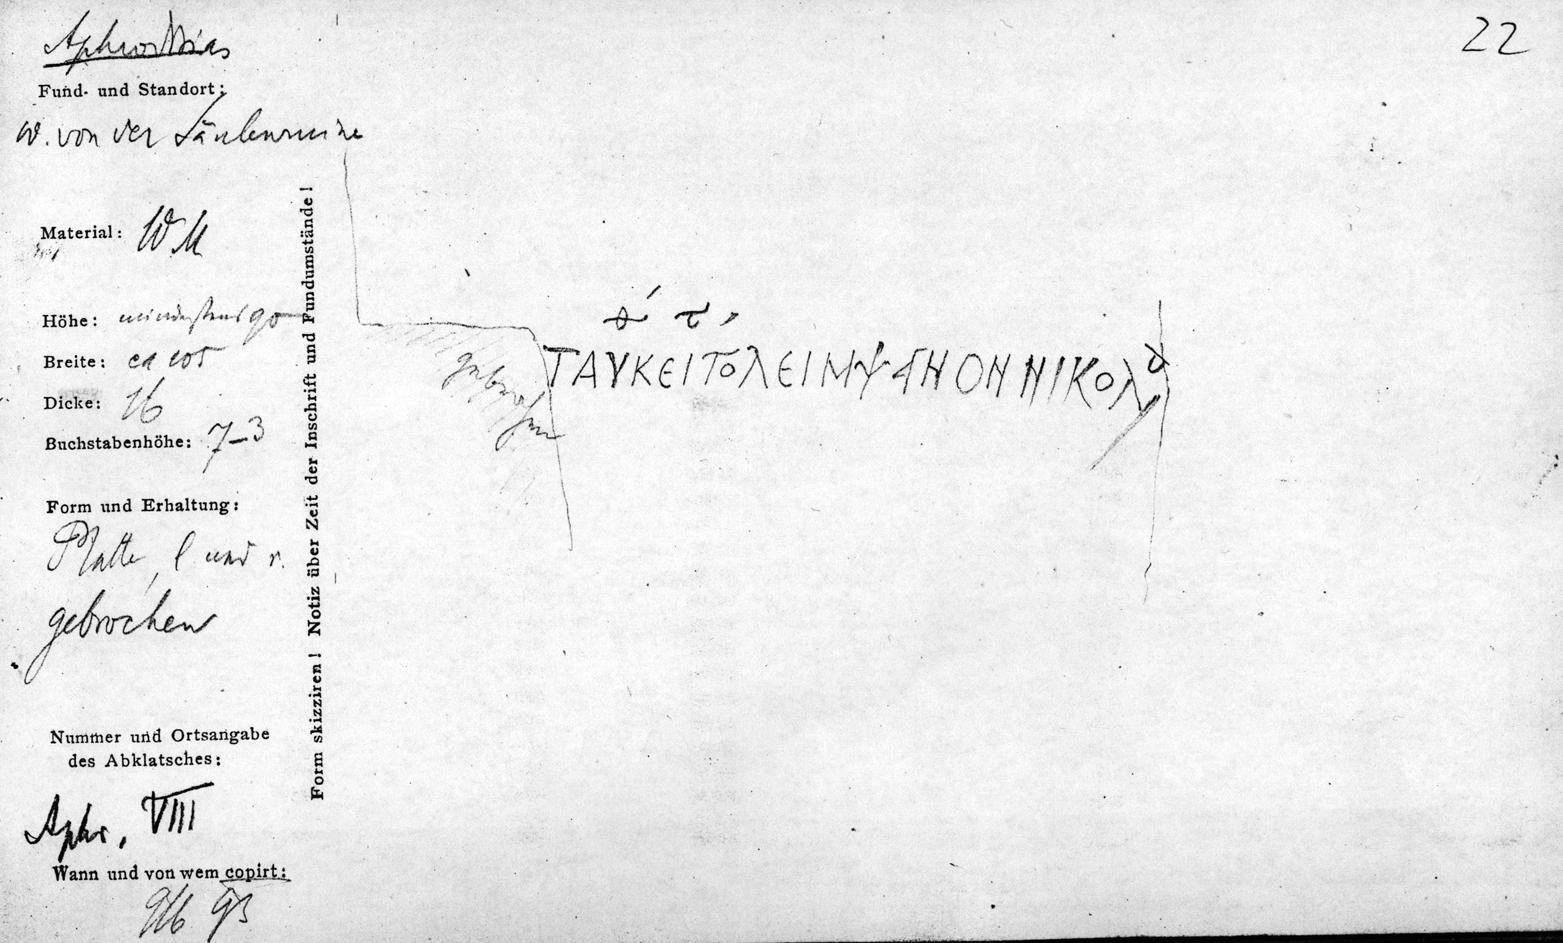 Aphrodisias
22
Fund- und Standort:
W. von der Säulenruine
Material: W M
Höhe: mindestens 90
Breite: ca 105
Dicke: 16
Buchstabenhöhe: 7–3
Form und Erhaltung:
Platte, l und r.
gebrochen
Nummer und Ortsangabe
des Abklatsches:
Aphr. VIII
Wann und von wem copirt:
93
Form skizziren! Notiz über Zeit der Inschrift und Fundumstände!
gebrochen
ΤΑΥΚΕΙΠΟΛΕΙΜ
ΗΟΝΝΙΚΟΛ